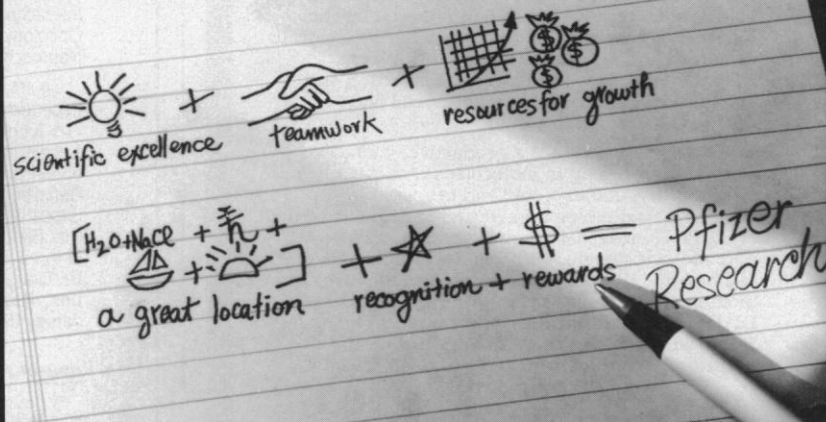 + +
scientific excellence teamwork resources for growth
[H2O+NaCl + +
+ ] + + $ = Pfizer
a great location recognition + rewards Research